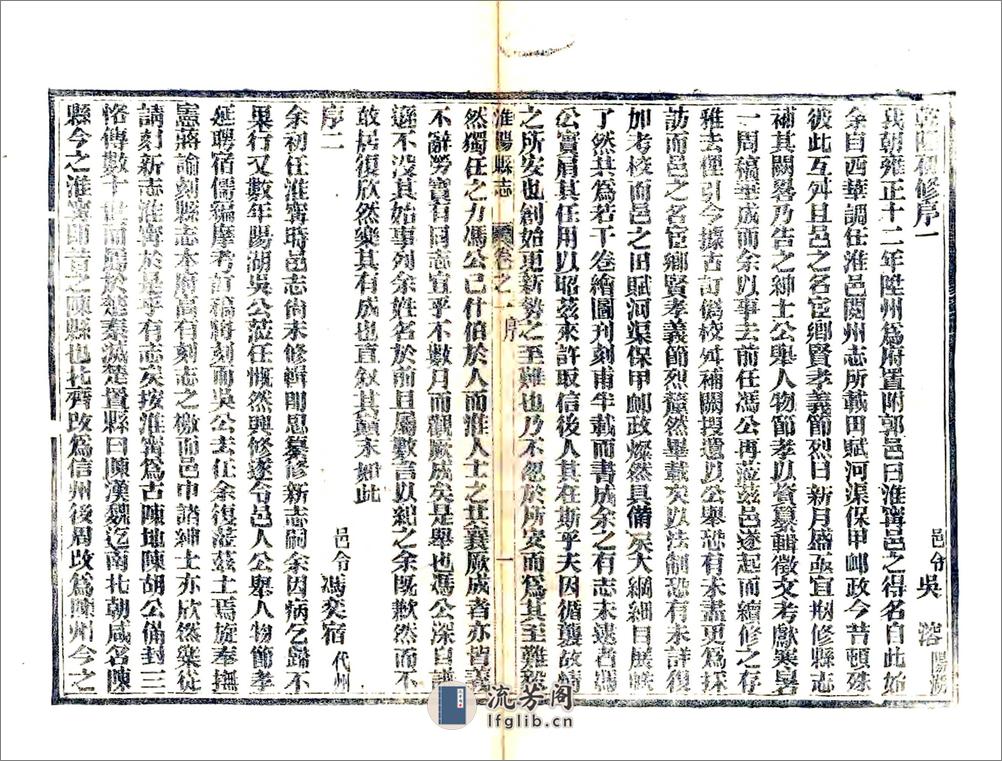 乾隆初修序一
邑令吳溶陽湖
我朝雍正十二年陞州為府置附郭邑曰淮寧邑之得名自此始
余自西華調任淮邑閱州志所載田賦河渠保甲郵政今昔頓殊
彼此互舛且邑之名宦鄉賢孝義節烈日新月盛亟宜刱修縣志
補其闕畧乃告之紳士公舉人物節孝以資纂輯徵文考獻寒暑
一周稿垂成而余以事去前任馮公再蒞茲邑遂起而續修之存
雅去俚引今據古訂偽校舛補闕搜遺以公舉恐有未盡更為採
訪而邑之名宦鄉賢孝義節烈釐然畢載矣以法制恐有未詳復
加考校而邑之田賦河渠保甲郵政燦然具備矣大綱細目展帙
了然共為若干卷繪圖刊刻甫半載而書成余之有志未逮者馮
公實肩其任用以昭茲來許取信後人其在斯乎夫因循襲故情
之所安也創始更新勢之至難也乃不忽於所安而為其至難毅
淮陽縣志 卷之一 序 一
然獨任之力馮公已什伯於人而淮人士之共襄厥成者亦皆義
不辭勞實有同志宜乎不數月而觀厥成矣是舉也馮公深自謙
遜不没其始事列余姓名於前且屬數言以紀之余既歉然而不
敢居復欣然樂其有成也直叙其顛末如此
序二
邑令馮奕宿代州
余初任淮寧時邑志尚未修輯即思纂修新志嗣余因病乞歸不
果行又數年陽湖吳公蒞任慨然興修遂令邑人公舉人物節孝
延聘宿儒編摩考訂稿將刻而吳公去任余復蒞茲土焉旋奉撫
憲蔣諭刻縣志本府當有刻志之檄而邑中諸紳士亦欣然樂從
請刻新志淮寧於是乎有志矣按淮寧為古陳地陳胡公滿封三
恪傳數十世而屬於楚秦滅楚置縣曰陳漢魏迄南北朝咸名陳
縣今之淮寧即昔之陳縣也北齊改為信州後周改為陳州今之
流芳阁
lfglib.cn